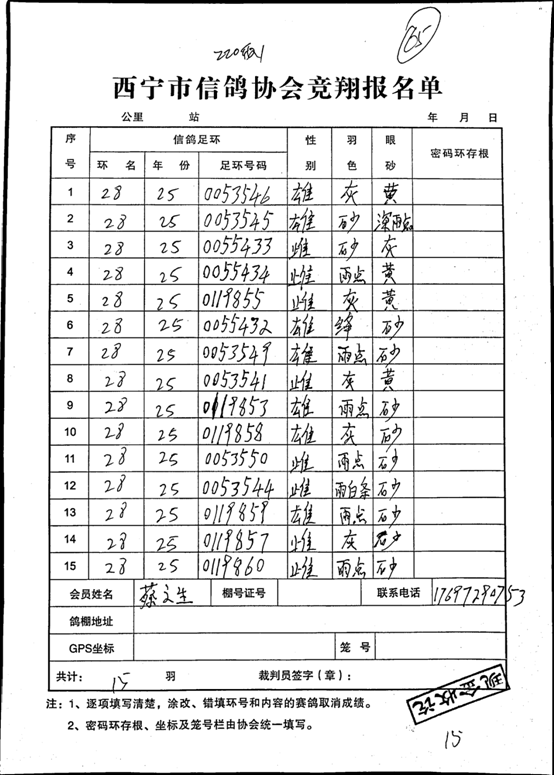 65
西宁市信鸽协会竞翔报名单
公里 站 年 月 日
序号 信鸽足环 性别 羽色 眼砂 密码环存根
环名 年份 足环号码
1 28 25 0053546 雄 灰 黄
2 28 25 0053545 雄 砂 深雨点
3 28 25 0055433 雌 砂 灰
4 28 25 0055434 雌 雨点 黄
5 28 25 0119855 雌 灰 黄
6 28 25 0055432 雄 绛 砂
7 28 25 0053549 雄 雨点 砂
8 28 25 0053541 雌 灰 黄
9 28 25 0119853 雄 雨点 砂
10 28 25 0119858 雄 灰 砂
11 28 25 0053550 雌 雨点 砂
12 28 25 0053544 雌 雨白条 砂
13 28 25 0119859 雄 雨点 砂
14 28 25 0119857 雌 灰 砂
15 28 25 0119860 雌 雨点 砂
会员姓名 蔡文生 棚号证号 联系电话 17697294753
鸽棚地址
GPS坐标 笼号
共计： 15 羽 裁判员签字（章）：
现金收讫
注：1、逐项填写清楚，涂改、错填环号和内容的赛鸽取消成绩。
2、密码环存根、坐标及笼号栏由协会统一填写。
15